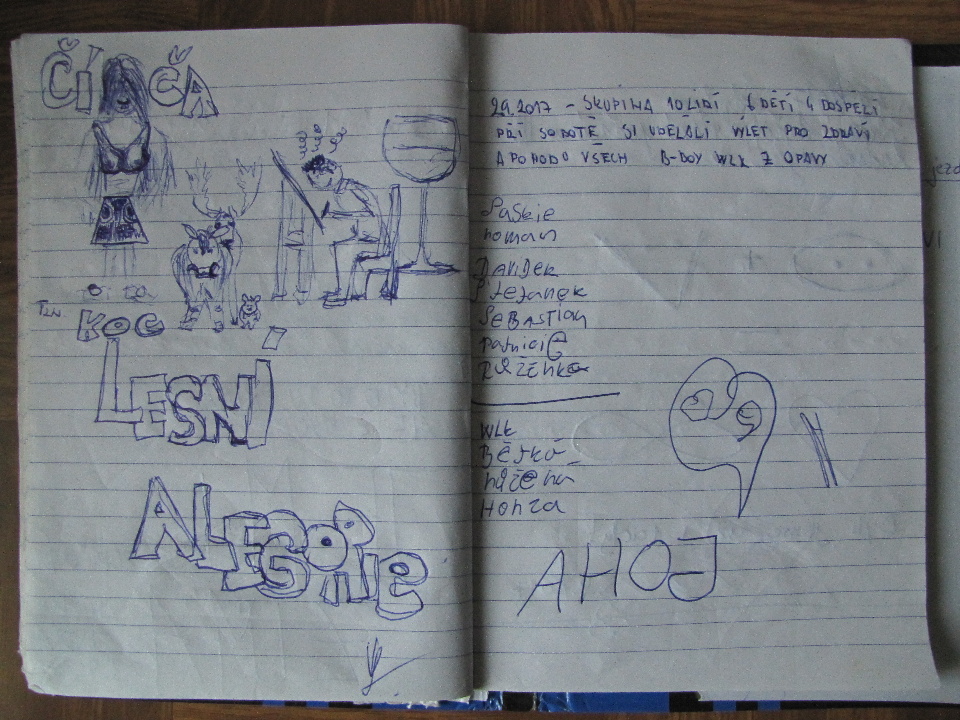 ČÍČA
TZN.
KOC
LESNÍ
ALEGORIE
2.9.2017 - SKUPINA 10 LIDÍ 6 DĚTÍ 4 DOSPĚLÍ
PŘI SOBOTĚ SI UDĚLALI VÝLET PRO ZDRAVÍ
A POHODU VŠECH B-DAY WLK Z OPAVY
Roman
DAVIDEK
Štěpánek
SEBASTIAN
Patricie
RŮŽENKA
WLK
Běťka
Růžena
Honza
AHOJ